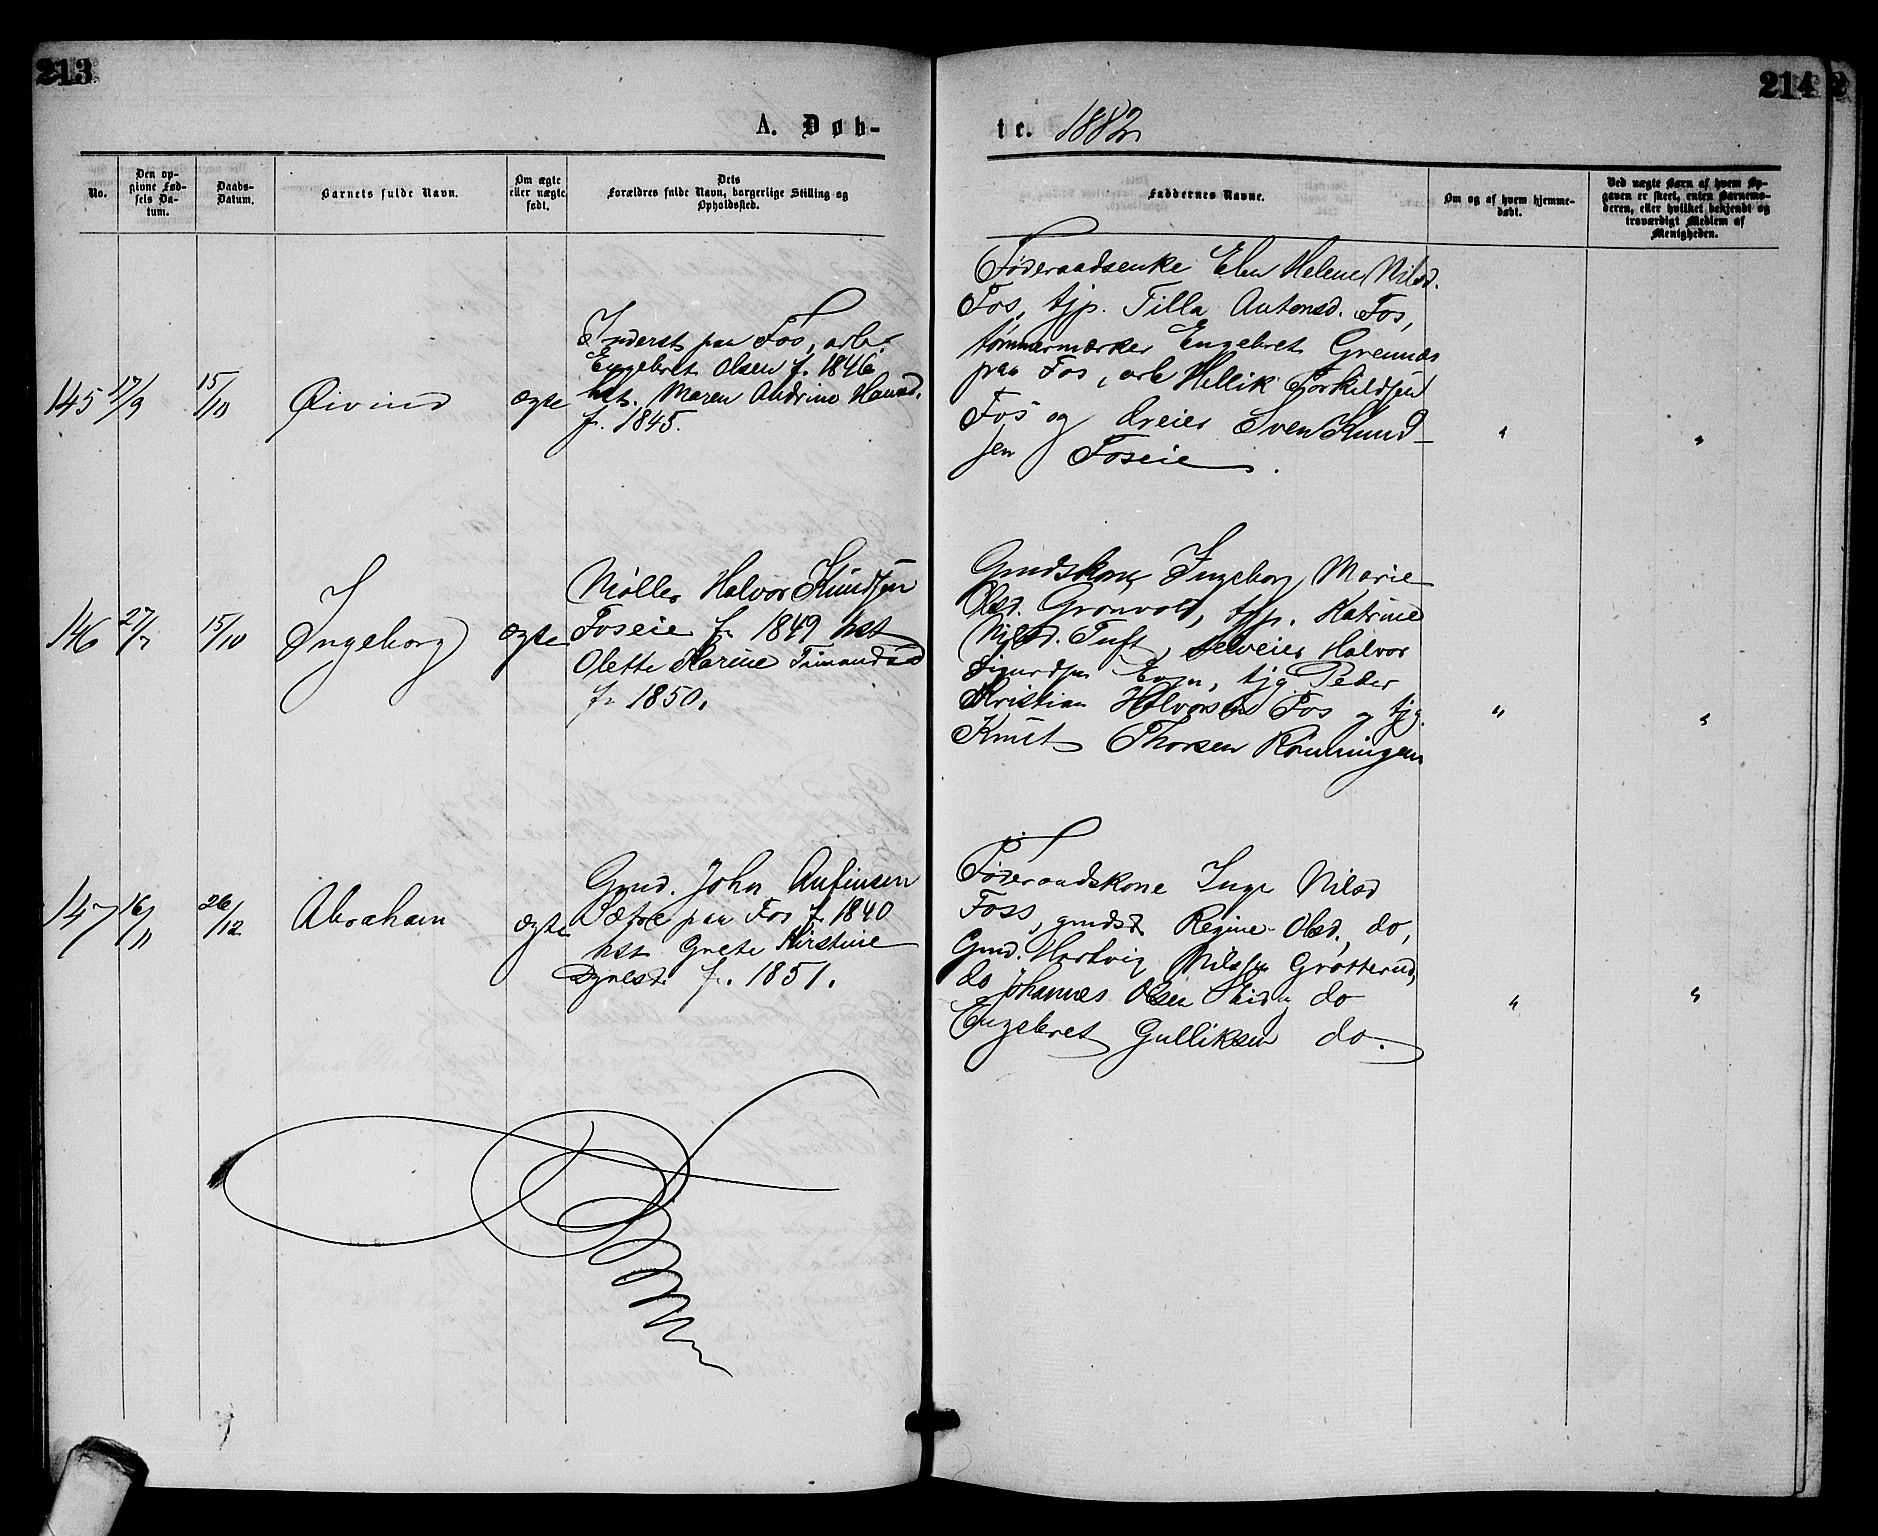 213
214
2
A. Døb-
te. 1882
No.
Den op-
givne Fød-
sels Da-
tum.
Daabs-
Datum.
Barnets fulde Navn.
Om ægte
eller uægte
født.
Dets
Forældres fulde Navn, borgerlige Stilling og
Opholdssted.
Faddernes Navne.
Om og af hvem hjemme-
døbt.
Ved uægte Børn af hvem Op-
gaven er skeet, enten Barnemo-
deren, eller hvilket bekjendt og
troværdigt Medlem af
Menigheden.
145 17/9 15/10 Øivind ægte
Inderst paa Fos, arb.
Engebret Olsen f. 1846
hst. Maren Andrine Hansd.
f. 1845.
Føderaadsenke Elen Helene Nilsd.
Fos, tjp. Tilla Antonsd. Fos,
tømmermærker Engebret Grennes
paa Fos, arb Hellik Torkildsen
Fos og dreier Sven Knud-
sen Foseie.
" "
146 27/7 15/10 Ingeborg ægte
Møller Halvor Knudsen
Foseie f. 1849 hst
Olette Karine
f. 1850.
Gmdskone Ingeborg Marie
Olsd. Grønvold, tjp. Katrine
Nilsd. Tuft, selveier Halvor
Sigurdsen tjg Peder
Kristian Halvorsen Fos og tjg.
Knut Thorsen Rønningen
" "
147 16/11 26/12 Abraham ægte
Gmd. John Anfinsen
Sætre paa Fos f. 1840
hst Grete Kirstine
f. 1851.
Føderaadskone Inge Nilsd
Foss, gmdsd Regine Olsd. do,
Gmd. Hartvig Nilsen Grøtterud,
do Johannes Olsen Eid, do
Engebret Gulliksen do.
" "